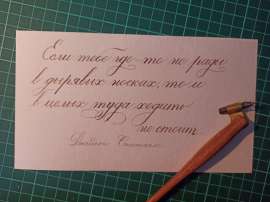 Если тебе где-то не рады
в дырявых носках, то и
в целых туда ходить
не стоит.